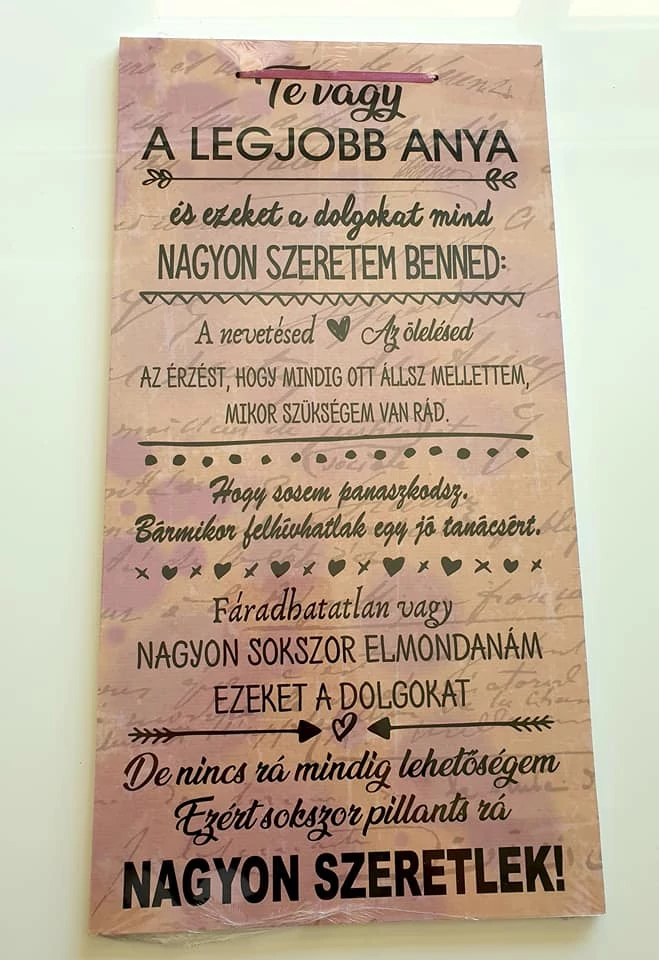 Te vagy
A LEGJOBB ANYA
és ezeket a dolgokat mind
NAGYON SZERETEM BENNED:
A nevetésed Az ölelésed
AZ ÉRZÉST, HOGY MINDIG OTT ÁLLSZ MELLETTEM,
MIKOR SZÜKSÉGEM VAN RÁD.
Hogy sosem panaszkodsz.
Bármikor felhívhatlak egy jó tanácsért.
Fáradhatatlan vagy
NAGYON SOKSZOR ELMONDANÁM
EZEKET A DOLGOKAT
De nincs rá mindig lehetőségem
Ezért sokszor pillants rá
NAGYON SZERETLEK!